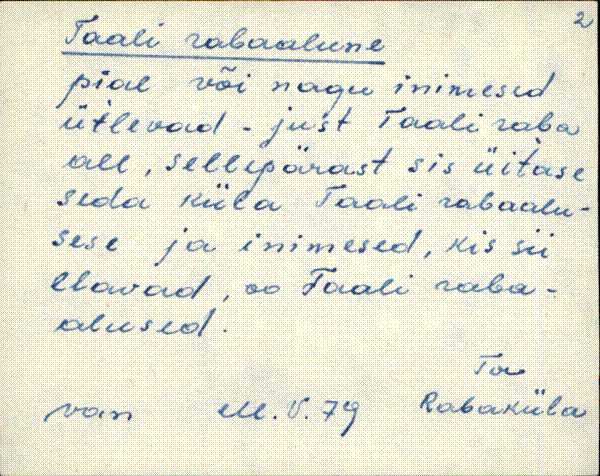 2
Taali rabaalune
pial või nagu inimesed
ütlevad - just Taali raba
all, sellepärast sis üitase
seda küla Taali rabaalu-
sese ja inimesed, kis sii
elavad, oo Taali raba-
alused.
Tor
van M. V. 79 Rabaküla